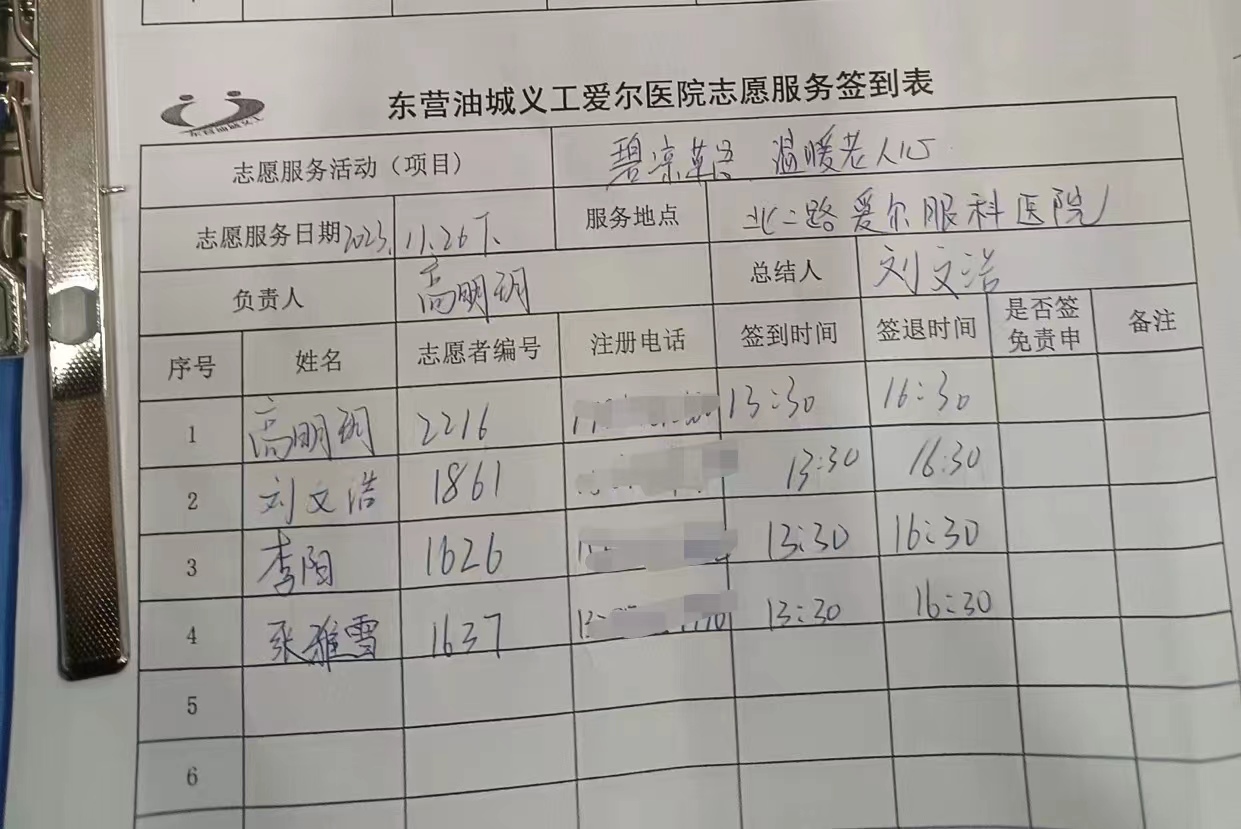 东营油城义工
东营油城义工爱尔医院志愿服务签到表
志愿服务活动（项目） 碧 温暖老人心
志愿服务日期2023. 11.26下 服务地点 北二路爱尔眼科医院
负责人 高明玥 总结人 刘文浩
序号 姓名 志愿者编号 注册电话 签到时间 签退时间 是否签免责申 备注
1 高明玥 2216 13:30 16:30
2 刘文浩 1861 13:30 16:30
3 李阳 1626 13:30 16:30
4 张雅雪 1637 13:30 16:30
5
6